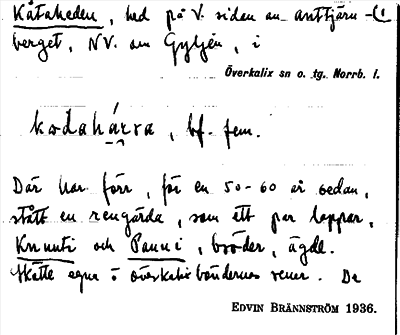 Kåtaheden, hed på V. sidan av anttjärn-
berget, NV. om Gyljen, i
Överkalix sn o. tg. Norrb. l.
kodahárra, bf. fem.
Där har förr, för en 50-60 år sedan,
stått en rengärda, som ett par lappar,
Knuuti och Pauvi, bröder, ägde.
Skötte egna o överkalixböndernas renar. De
EDVIN BRÄNNSTRÖM 1936.